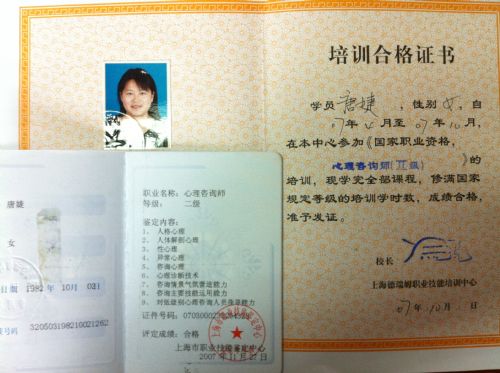 培训合格证书
学员唐婕,性别女,自
07年4月至07年10月,
在本中心参加《国家职业资格,
心理咨询师(二级)》的
培训,现学完全部课程,修满国家
规定等级的培训学时数,成绩合格,
准予发证。
校长
上海德瑞姆职业技能培训中心
07年10月
唐婕
女
日期 1982年10月02日
320503198210021262
职业名称:心理咨询师
等级: 二级
鉴定内容:
1、 人格心理
2、 人体解剖心理
3、 性心理
4、 异常心理
5、 咨询心理
6、 心理诊断技术
7、 咨询情景气氛营造能力
8、 咨询主要技能运用能力
9、 对低级别心理咨询人员督导能力
证书号码:
评定成绩: 合格
上海市职业技能鉴定中心
2007年11月27日